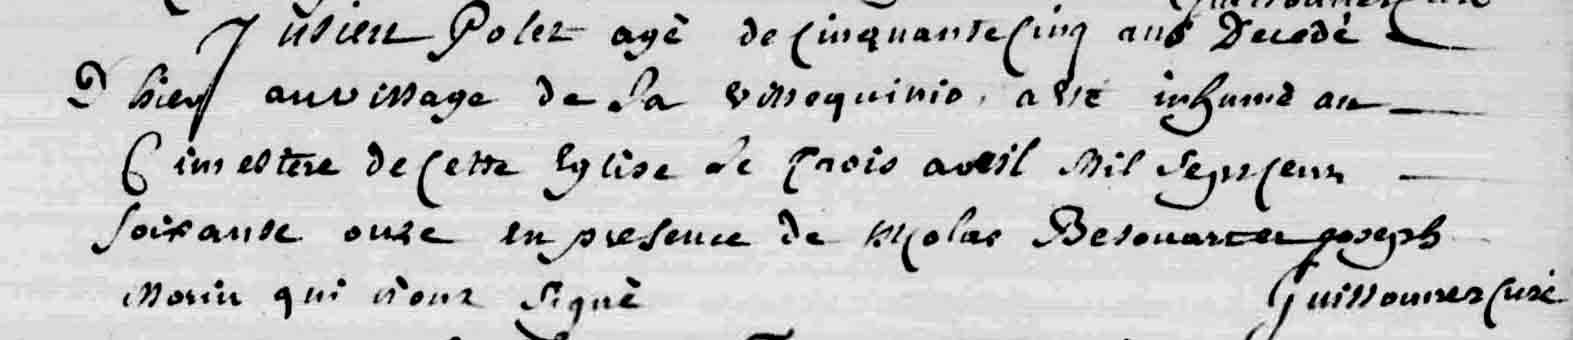 Julien Polet agé de Cinquante Cinq ans Decedé
D hier au village de La villequinio, a été inhumé au
Cimettere de Cette Eglise Le trois avril Mil Sept Cent
Soixante onze en presence de nicolas Besouarc et joseph
Morin qui n'ont Signé
Guillouzer Curé